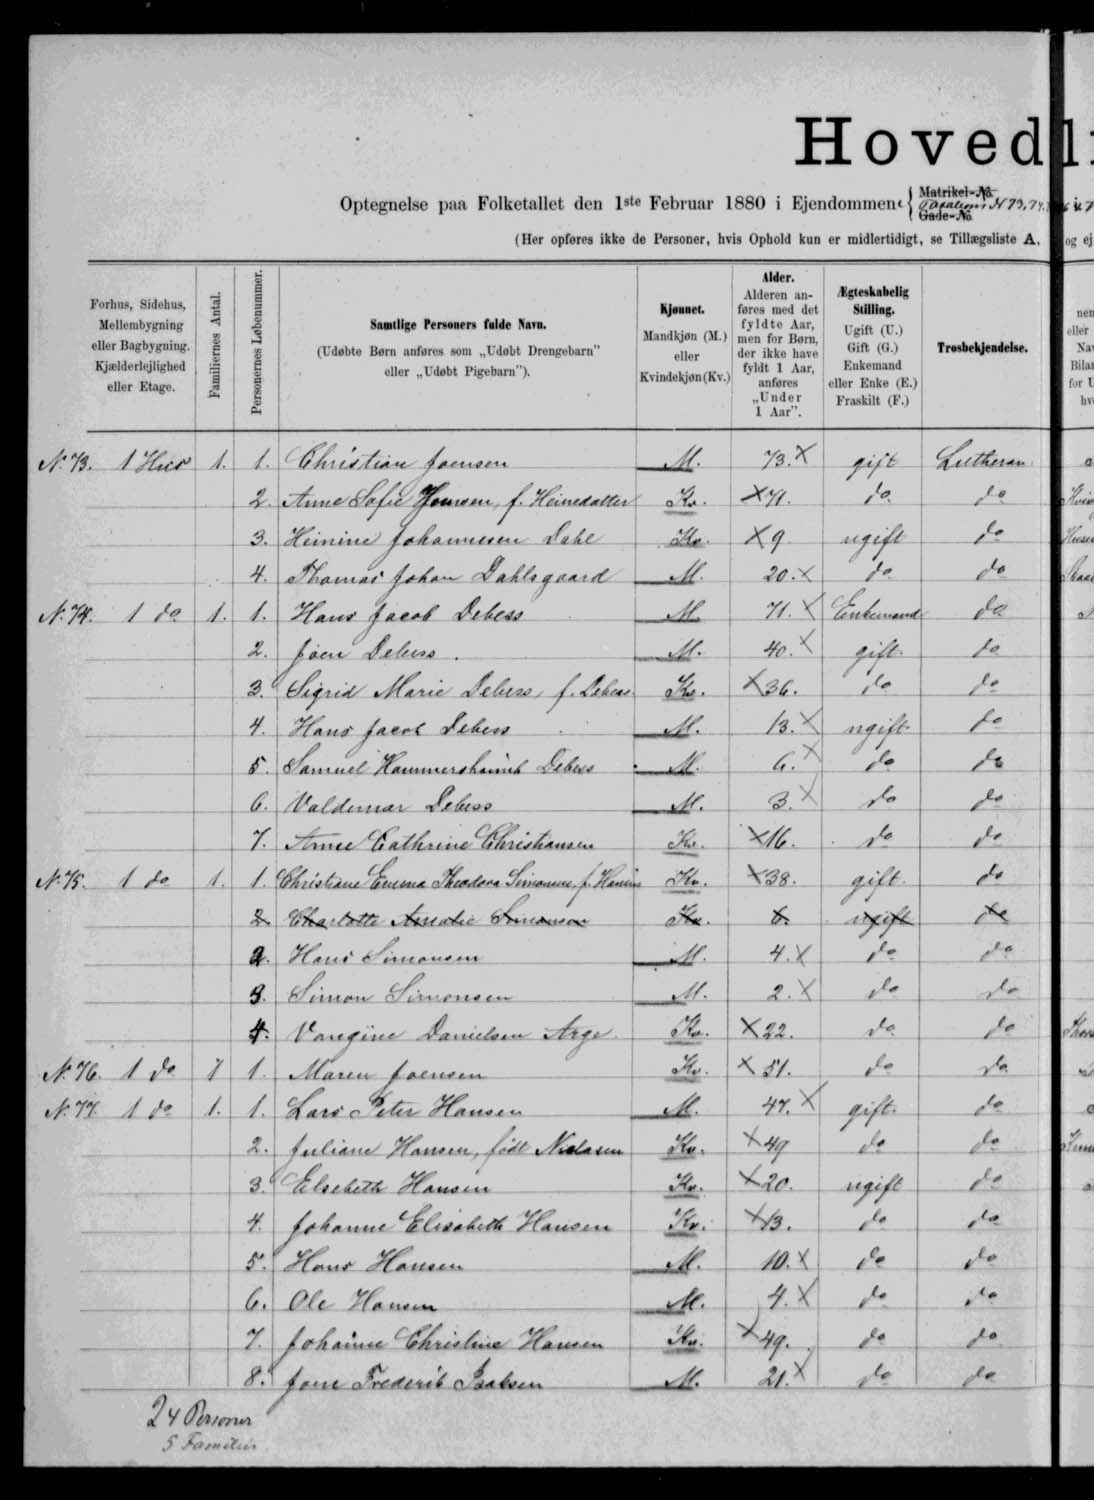 Hovedli
Optegnelse paa Folketallet den 1ste Februar 1880 i Ejendommene { Matrikel-No. Taxations N 73, 74, Gade-No. i
(Her opføres ikke de Personer, hvis Ophold kun er midlertidigt, se Tillægsliste A. og ej
Forhus, Sidehus, Mellembygning eller Bagbygning. Kjælderlejlighed eller Etage.
Familiernes Antal.
Personernes Løbenummer.
Samtlige Personers fulde Navn.
(Udøbte Børn anføres som „Udøbt Drengebarn" eller „Udøbt Pigebarn").
Kjønnet.
Mandkjøn (M.) eller Kvindekjøn (Kv.)
Alder.
Alderen anføres med det fyldte Aar, men for Børn, der ikke have fyldt 1 Aar, anføres „Under 1 Aar".
Ægteskabelig Stilling.
Ugift (U.) Gift (G.) Enkemand eller Enke (E.) Fraskilt (F.)
Trosbekjendelse.
N. 73. 1 Huus 1. 1. Christian Joensen M. 73. X gift Lutheran
2. Anne Sofie Joensen, f. Heinedatter Kv. X 71. do do
3. Heinine Johannesen Dahl Kv. X 9 ugift do
4. Thomas Johan Dahlsgaard M. 20. X do do
N. 74. 1 do 1. 1. Hans Jacob Debess M. 71. X Enkemand do
2. Joen Debess. M. 40. X gift. do
3. Sigrid Marie Debess, f. Debess Kv. X 36. do do
4. Hans Jacob Debess M. 13. X ugift do
5. Samuel Hammershaimb Debess M. 6. X do do
6. Valdemar Debess M. 3. X do do
7. Anne Cathrine Christiansen Kv. X 16. do do
N. 75. 1 do 1. 1. Christiane Emma Theodora Simonsen, f. Hansen Kv. X 38. gift. do
2. Charlotte Amalie Simonsen Kv. 6. ugift do
2. Hans Simonsen M. 4. X do do
3. Simon Simonsen M. 2. X do do
4. Vangine Danielsen Arge Kv. X 22. do do
N. 76. 1 do 1 1. Maren Joensen Kv. X 51. do do
N. 77. 1 do 1. 1. Lars Peter Hansen M. 47. X gift. do
2. Juliane Hansen, født Nielasen Kv. X 49 do do
3. Elsebeth Hansen Kv. X 20. ugift do
4. Johanne Elisabeth Hansen Kv. X 13. do do
5. Hans Hansen M. 10. X do do
6. Ole Hansen M. 4. X do do
7. Johanne Christine Hansen Kv. X 49. do do
8. Joen Frederik Isaksen M. 21. X do do
24 Personer
5 Familier